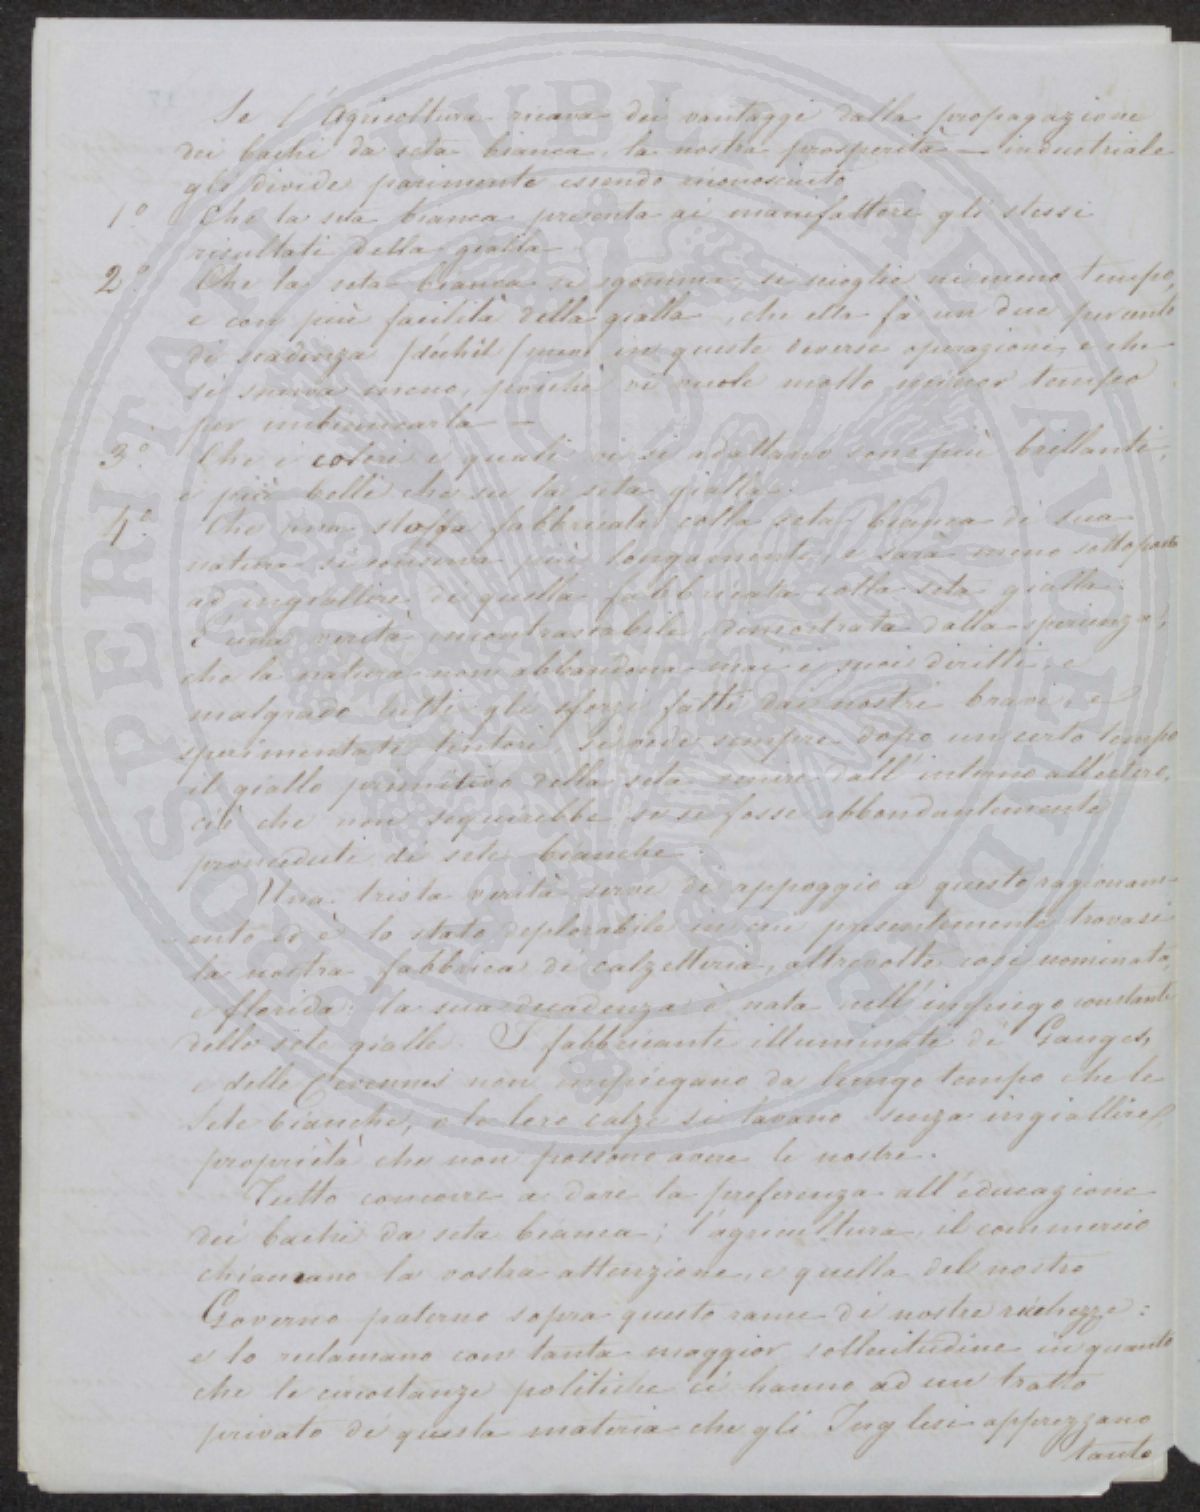 Se l'Agricoltura ricava dei vantaggi dalla propagazione
dei bachi da seta bianca, la nostra prosperità industriale
gli divide parimente essendo riconosciuto
1º Che la seta bianca presenta ai manifattori gli stessi
risultati della gialla
2º Che la seta bianca si sgomma, si scioglie in meno tempo,
e con più facilità della gialla, che ella fà un due per cento
di scadenza (déchet) meno in queste diverse operazioni, e che
si snerva meno, poichè vi vuole molto minor tempo
per imbiancarla —
3º Che i colori i quali vi si adattano sono più brillanti,
e più belli che su la seta gialla.
4º Che una stoffa fabbricata colla seta bianca di sua
natura si conserva più longamente, e sarà meno sottoposta
ad ingiallire di quella fabbricata colla seta gialla.
È una verità incontrastabile, dimostrata dalla sperienza,
che la natura non abbandona mai i suoi diritti, e
malgrado tutti gli sforzi fatti dai nostri bravi, e
sperimentati tintori, si vede sempre dopo un certo tempo
il giallo primitivo della seta venire dall'interno all'estere,
ciò che non seguirebbe se si fosse abbondantemente
proveduti di sete bianche.
Una trista verità serve di appoggio a questo ragionam-
ento ed è lo stato deplorabile in cui presentemente trovasi
la nostra fabbrica di calzetteria, altrevolte così nominata,
e florida: la sua decadenza è nata nell'impiego constante
delle sete gialle. I fabbricanti illuminati di Ganges,
e delle Cevennes non impiegano da lungo tempo che le
Sete bianche, e le loro calze si lavano senza ingiallire,
proprietà che non possono avere le nostre.
Tutto concorre a dare la preferenza all'educazione
dei bachi da seta bianca; l'agricultura, il commercio
chiamano la vostra attenzione, e quella del nostro
Governo paterno sopra questo rame di nostre richezze:
e lo reclamano con tanta maggior sollecitudine in quanto
che le circostanze politiche ci hanno ad un tratto
privato di questa materia che gli Inglesi apprezzano
tanto
PROSPERITATI PUBLICAE AUGENDAE